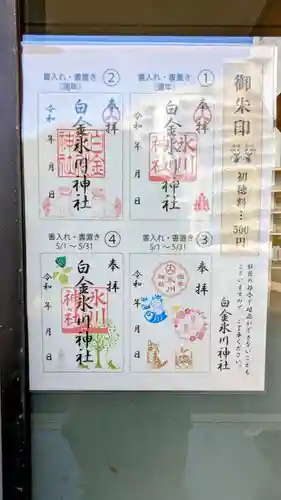 御朱印
初穂料…500円
白金氷川神社
書入れ・書置き ①
通年
奉拝
氷川神社
令和 年 月 日
書入れ・書置き ②
通年
奉拝
白金氷川神社
白金神社
令和 年 月 日
書入れ・書置き ③
5/1 ～ 5/31
奉拝
令和 年 月 日
書入れ・書置き ④
5/1 ～ 5/31
奉拝
白金氷川神社
氷川神社
令和 年 月 日